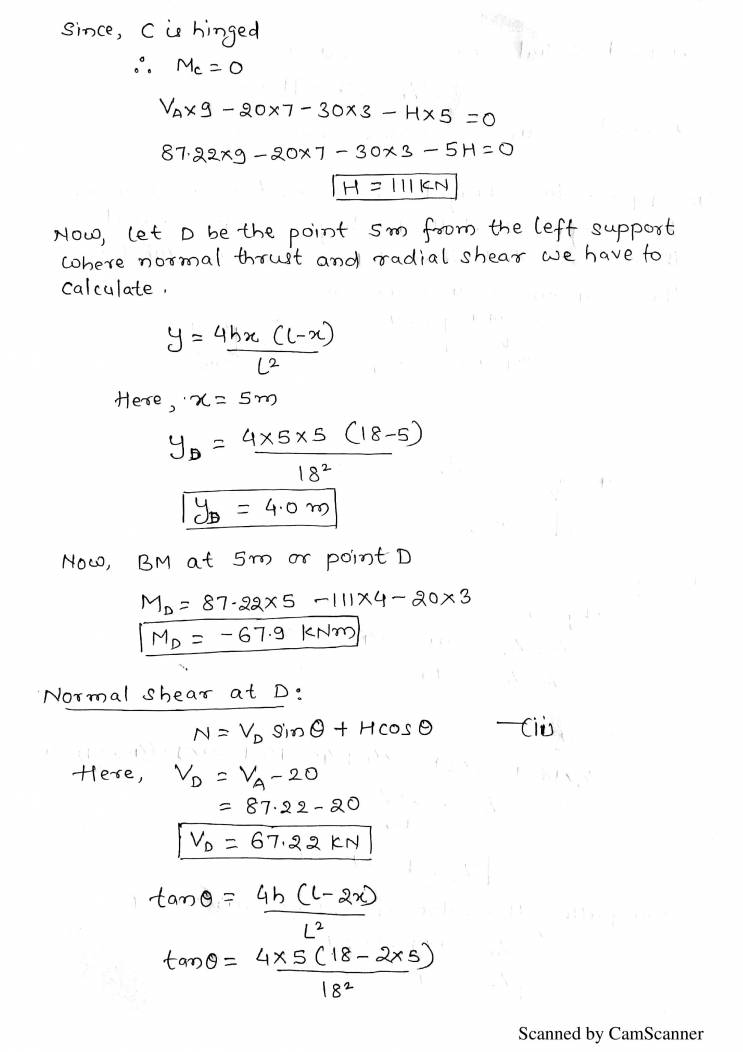 Since, C is hinged
∴ Mc = 0
VA×9 - 20×7 - 30×3 - H×5 = 0
87.22×9 - 20×7 - 30×3 - 5H = 0
H = 111 KN
Now, let D be the point 5m from the left support
where normal thrust and radial shear we have to
calculate.
y = 4hx (L-x)
L²
Here, x = 5m
yD = 4×5×5 (18-5)
18²
yD = 4.0 m
Now, BM at 5m or point D
MD = 87.22×5 - 111×4 - 20×3
MD = -67.9 KNm
Normal shear at D:
N = VD Sinθ + H cosθ —(ii)
Here, VD = VA - 20
= 87.22 - 20
VD = 67.22 KN
tanθ = 4h (L-2x)
L²
tanθ = 4×5 (18 - 2×5)
18²
Scanned by CamScanner